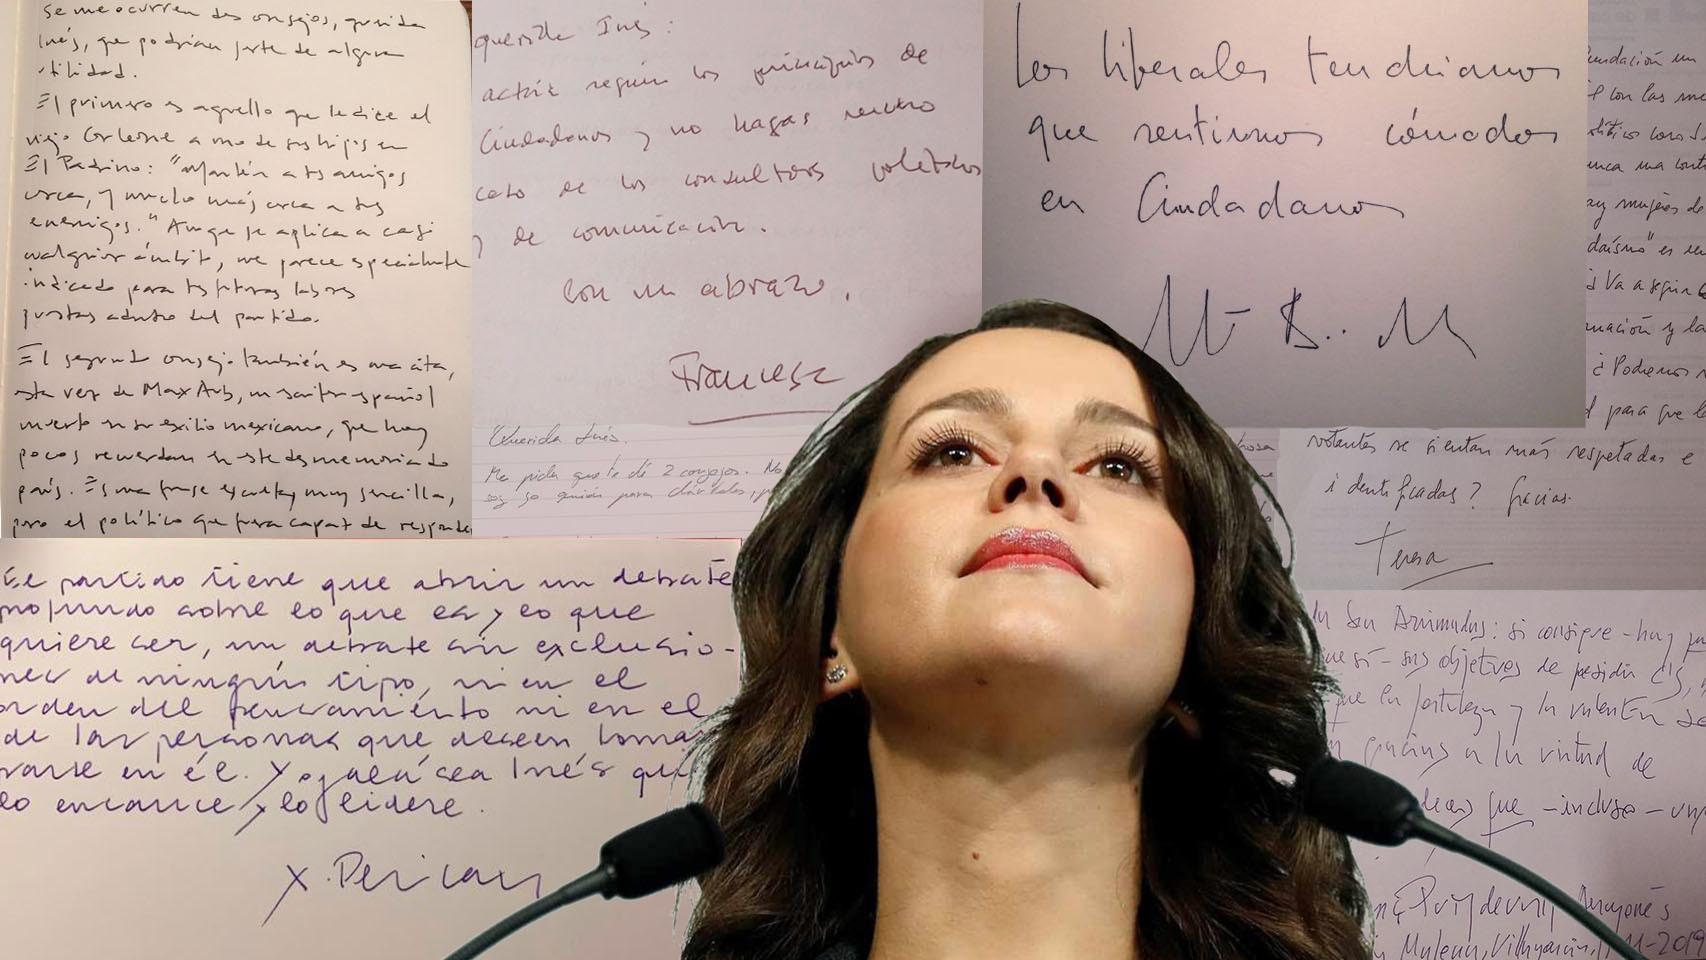 se me ocurren dos consejos, querida
Inés, que podrían serte de alguna
utilidad.
El primero es aquello que le dice el
viejo Corleone a uno de sus hijos en
El Padrino: "Mantén a tus amigos
cerca, y mucho más cerca a tus
enemigos." Aunque se aplica a casi
cualquier ámbito, me parece especialmente
indicado para tus futuras labores
justas adentro del partido.
El segundo consejo también es una cita,
esta vez de Max Aub, un escritor español
muerto en su exilio mexicano, que hay
pocos recuerdan en este desmemoriado
país. Es una frase escueta y muy sencilla,
pero el político que fuera capaz de responde
querida Inés:
actúa según los principios de
Ciudadanos y no hagas mucho
caso de los consultores políticos
y de comunicación.
Con un abrazo,
Francesc
Querida Inés.
Me pide que te dé 2 consejos. No
soy yo quién para dártelos,
los liberales tendríamos
que sentirnos cómodos
en Ciudadanos
undación un
con las me
lítico como
unca una cont
ay mujeres de
daísmo" es
¿Va a seguir
mación y la
¿Podemos
d para que lo
votantes se sientan más respetadas e
identificadas? Gracias.
Teresa
El partido tiene que abrir un debate
profundo sobre lo que es y lo que
quiere ser, un debate sin exclusio-
nes de ningún tipo, ni en el
orden del pensamiento ni en el
de las personas que deseen
en él. Y ojalá sea Inés qui
lo encauce y lo lidere.
X. Pericay
Inés Arrimadas: si consigue -hay
que sí- sus objetivos de presidir C's,
que la fortaleza y la
gracias a la virtud de
ideas que -incluso-
Puigdevall Aragonés
2019